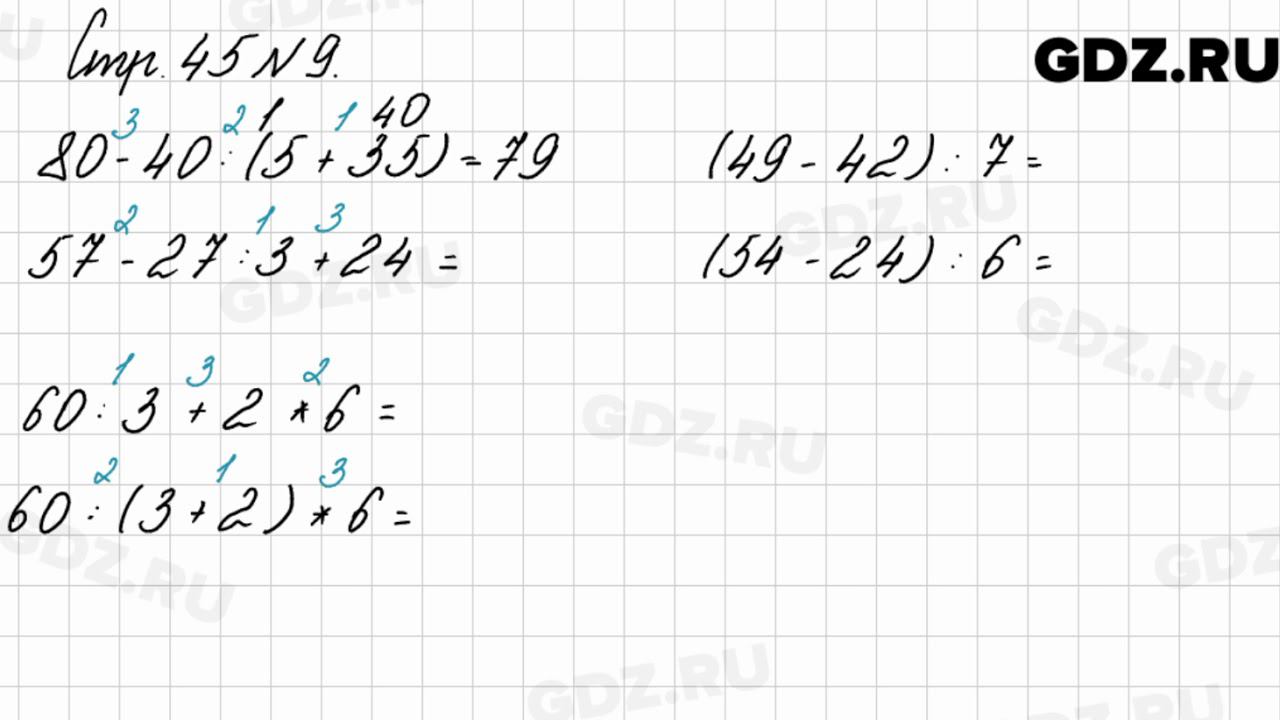 GDZ.RU
Стр. 45 N 9.
3 2 1 1 40
80 - 40 : (5 + 35) = 79
(49 - 42) : 7 =
2 1 3
57 - 27 : 3 + 24 =
(54 - 24) : 6 =
1 3 2
60 : 3 + 2 * 6 =
2 1 3
60 : (3 + 2) * 6 =
GDZ.RU
GDZ.RU
GDZ.RU
GDZ.RU
GDZ.RU
GDZ.RU
GDZ.RU
GDZ.RU